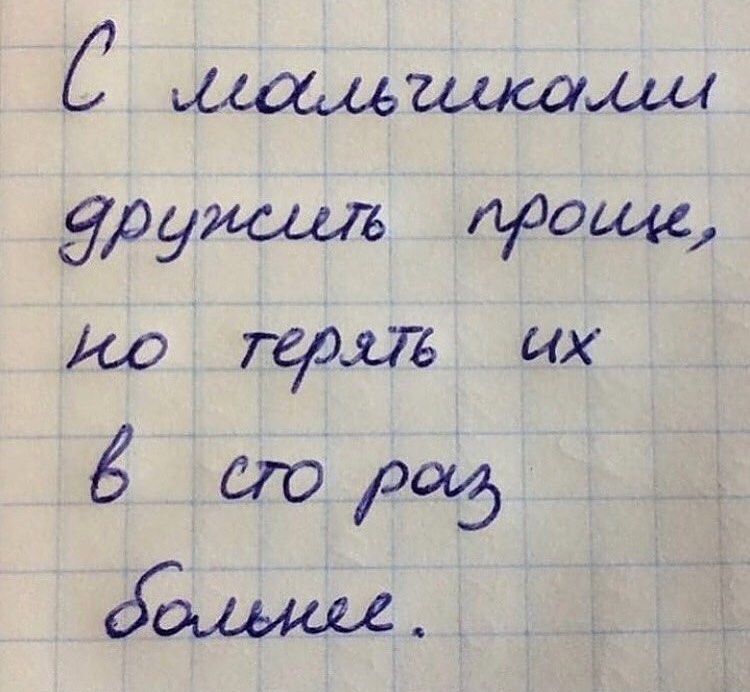 С мальчиками
дружить проще,
но терять их
в сто раз
больнее.